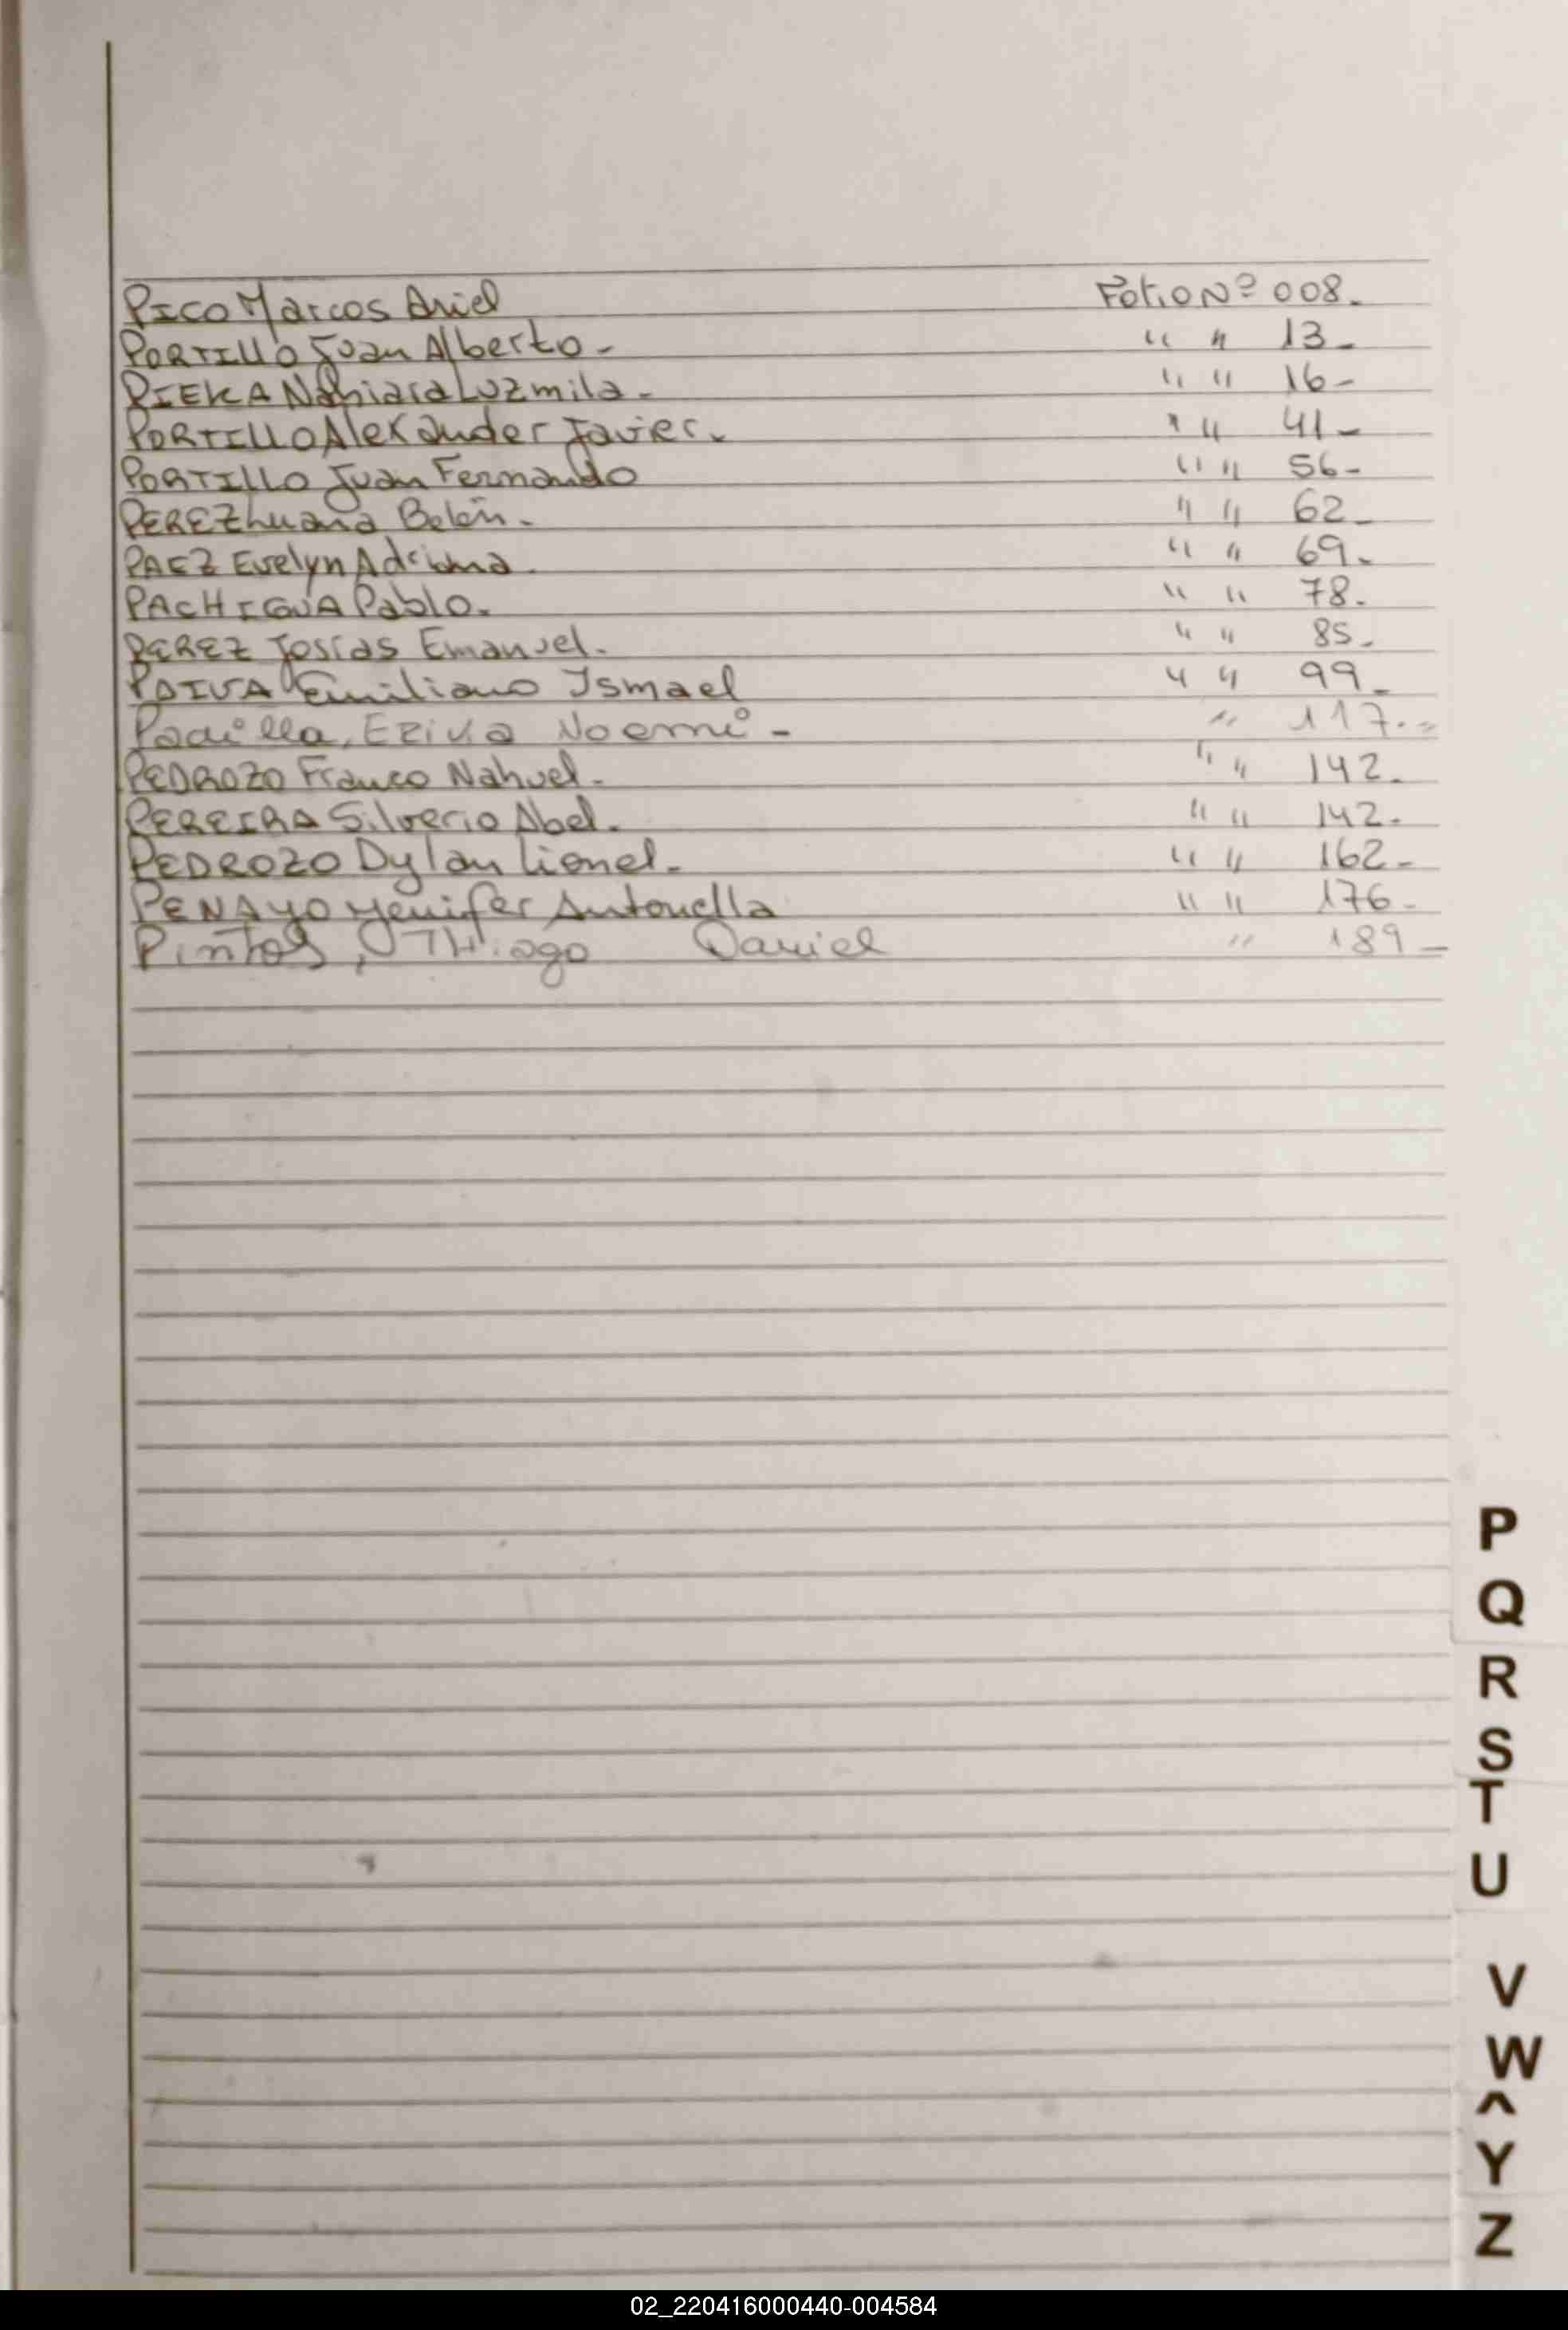 PICO Marcos Ariel Folio Nº 008.
PORTILLO Juan Alberto - " " 13 -
PIEKA Nahiara Luzmila - " " 16 -
PORTILLO Alexander Javier. " " 41 -
PORTILLO Juan Fernando " " 56 -
PEREZ Luana Belén - " " 62 -
PAEZ Evelyn Adriana. " " 69.
PACHIGUA Pablo. " " 78.
PEREZ Josías Emanuel. " " 85.
PAIVA Emiliano Ismael " " 99 -
Padilla, Noemí - " 117. =
PEDROZO Franco Nahuel - " " 142.
PEREIRA Silverio Abel. " " 142.
PEDROZO Dylan Lionel - " " 162 -
PENAYO Yenifer Antonella " " 176 -
Pintos, Thiago Daniel " 189 -
P
Q
R
S
T
U
V
W
Y
Z
02_220416000440-004584